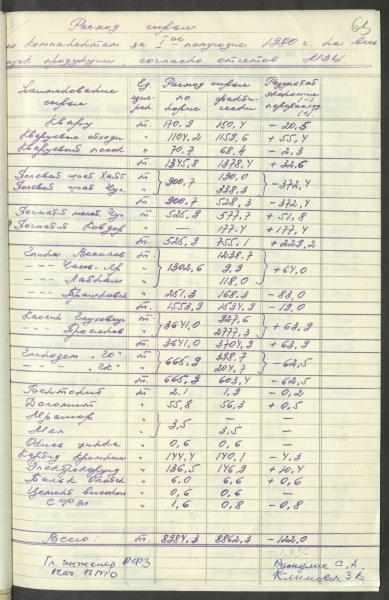 63
Расход сырья
по компонентам за I ое полугодие 1980 г. на вы-
пуск продукции, согласно отчетов
Наименование сырья Ед. измерен Расход сырья по норме фактически Результат экономия (-) перерасход (+)
Кварц т. 170.9 150,4 - 20,5
Кварцевые отходы " 1104,2 1159,6 + 55,4
Кварцевый песок " 70,7 68,4 - 2,3
т. 1345,8 1378,4 + 32,6
Полевой шпат т. 190,0
Полевой шпат Чуп. " 900,7 338,3 - 372,4
т. 900,7 528,3 - 372,4
Пегматит Чуп. т. 525,9 577,7 + 51,8
Пегматит Ковдор " — 177,4 + 177,4
т. 525,9 755,1 + 229,2
Глина Веселов т. 1238.7
--- Часов-Яр " 1302,6 9.9 + 64,0
--- Латнен " 118,0
--- " 251,3 168,3 - 83,0
т. 1553,9 1534,9 - 19,0
Каолин Глуховец т. 927,6
--- Просянов " 3641,0 2777,3 + 63,9
т. 3641,0 3704,9 + 63,9
Глинозем т. 398,7
--- " 665,9 204,7 - 62,5
т. 665,9 603,4 - 62,5
Бентонит т. 2,1 1,9 - 0,2
Доломит " 55,8 56,3 + 0,5
Мрамор " —
Мел " 3,5 3,5 —
Окись цинка " 0,6 0,6 —
Карбид кремния " 144,4 140,1 - 4,3
Электрокорунд " 136,5 146,9 + 10,4
Тальк " 6,0 6,6 + 0,6
Цемент " 0,6 0,6 —
" 1,6 0,8 - 0,8
Всего: т. 8984,3 8862,3 - 122,0
- 1,4%
Гл. инженер РФЗ
Нач. ПТО Климович З.В.